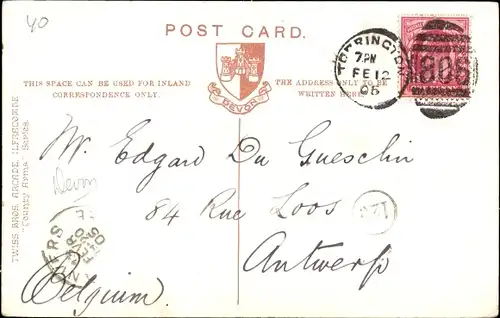 40
POST CARD.
THIS SPACE CAN BE USED FOR INLAND
CORRESPONDENCE ONLY.
DEVON
THE ADDRESS ONLY TO BE
WRITTEN HERE.
TORRINGTON
7 PM
FE 12
05
805
TWISS BROS. ARCADE, ILFRACOMBE
"County Arms" Series.
Devon
M. Edgard Du Gueschin
84 Rue Loos
Antwerp
Belgium